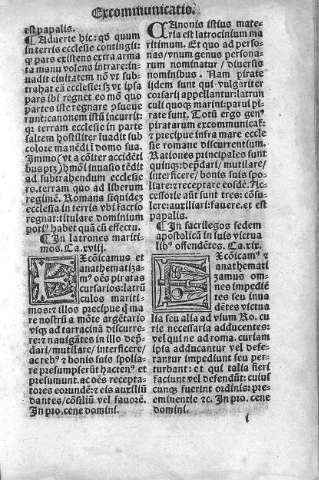 Excommunicatis.
est papalis.
¶ Aduerte hic: qȝ quum
in terris ecclesie contingit:
qȝ pars existens extra arma
ta manu volens intrare: in
uadit ciuitatem nō vt sub-
trahat eā ecclesie: sȝ vt ipsa
pars ibi regnet eo nō quo
partes iste regnare
runt: canonem istū incurrit:
qȝ terram ecclesie in parte
saltem hostiliter inuadit sub
colore manēdi ī domo sua.
Immo (vt a cōiter accidēti
hmōi inuasio tēdit
ad subtrahendum ecclesie
ro. terram quo ad liberum
regimē. Romana siquidez
ecclesia in terris vbi factio
regnat titulare dominium
habet quā cū effectu.
¶ In latrones mariti
mos. Ca. xviij.
Excōicamus et
anathematiza-
mꝰ oēs piratas
cursarios: latrū
culos mariti-
mos: et illos precipue qui ma
re nostrū a mōte argētario
vsqȝ ad tarracinā discurre-
re: et nauigātes in illo dep̄-
dari / mutilare / interficere /
ac rebꝰ et bonis suis spolia-
re presumpserūt hactenꝰ et
presumunt. ac oēs recepta-
tores eorundē: et eis auxiliū
dantes / cōsiliū vel fauorē.
In pro. cene domini.
¶ Canonis istius mate-
ria est latrocinium ma
ritimum. Et quo ad perso-
nas / vnum genus personar
rum nominatur / diuersis
nominibus. Nam pirate
ijdem sunt qui vulgariter
corsarij appellantur: latrun
culi quoqȝ marini: parui pi-
rate sunt. Totū ergo genꝰ
piratarum excommunicat:
et precipue infra mare eccle
sie romane discurrentium.
Rationes principales sunt
quinqȝ: dep̄dari / mutilare /
interficere / bonis suis spo-
liare: et receptare eosdē. Ac-
cessorie aūt sunt tres: cōsu-
lere: auxiliari: fauere. et est
papalis.
¶ In sacrilegos sedem
apostolicā in suis victua
libꝰ offendētes. Ca. xix.
Excōicamꝰ et
anathemati
zamus om-
nes impedie
tes seu inua
dētes victua
lia seu alia ad vsum Ro. cu
rie necessaria adducentes:
vel qui ne ad roma. curiam
ipsa adducantur vel defe-
rantur impediunt seu per-
turbant: et qui talia fieri
faciunt vel defendūt: cuius
cunqȝ fuerint ordinis: pre-
eminentie etc. In pro. cene
domini.